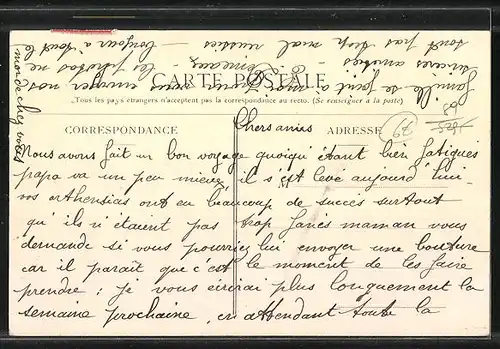 CARTE POSTALE
Tous les pays étrangers n'acceptent pas la correspondance au recto. (Se renseigner à la poste)
CORRESPONDANCE
ADRESSE
Chers amis
Nous avons fait un bon voyage quoiqu'étant bien fatigués
papa va un peu mieux il s'est levé aujourd'hui
vos arthensias ont eu beaucoup de succès surtout
qu'ils n'étaient pas trop fanés maman vous
demande si vous pourriez lui envoyer une bouture
car il paraît que c'est le moment de les faire
prendre : je vous écrirai plus longuement la
semaine prochaine, en attendant toute la
famille se joint à moi pour vous envoyer nos
sincères amitiés
les photos ne
sont pas trop mal réussies bonjour à tout le
monde chez vous